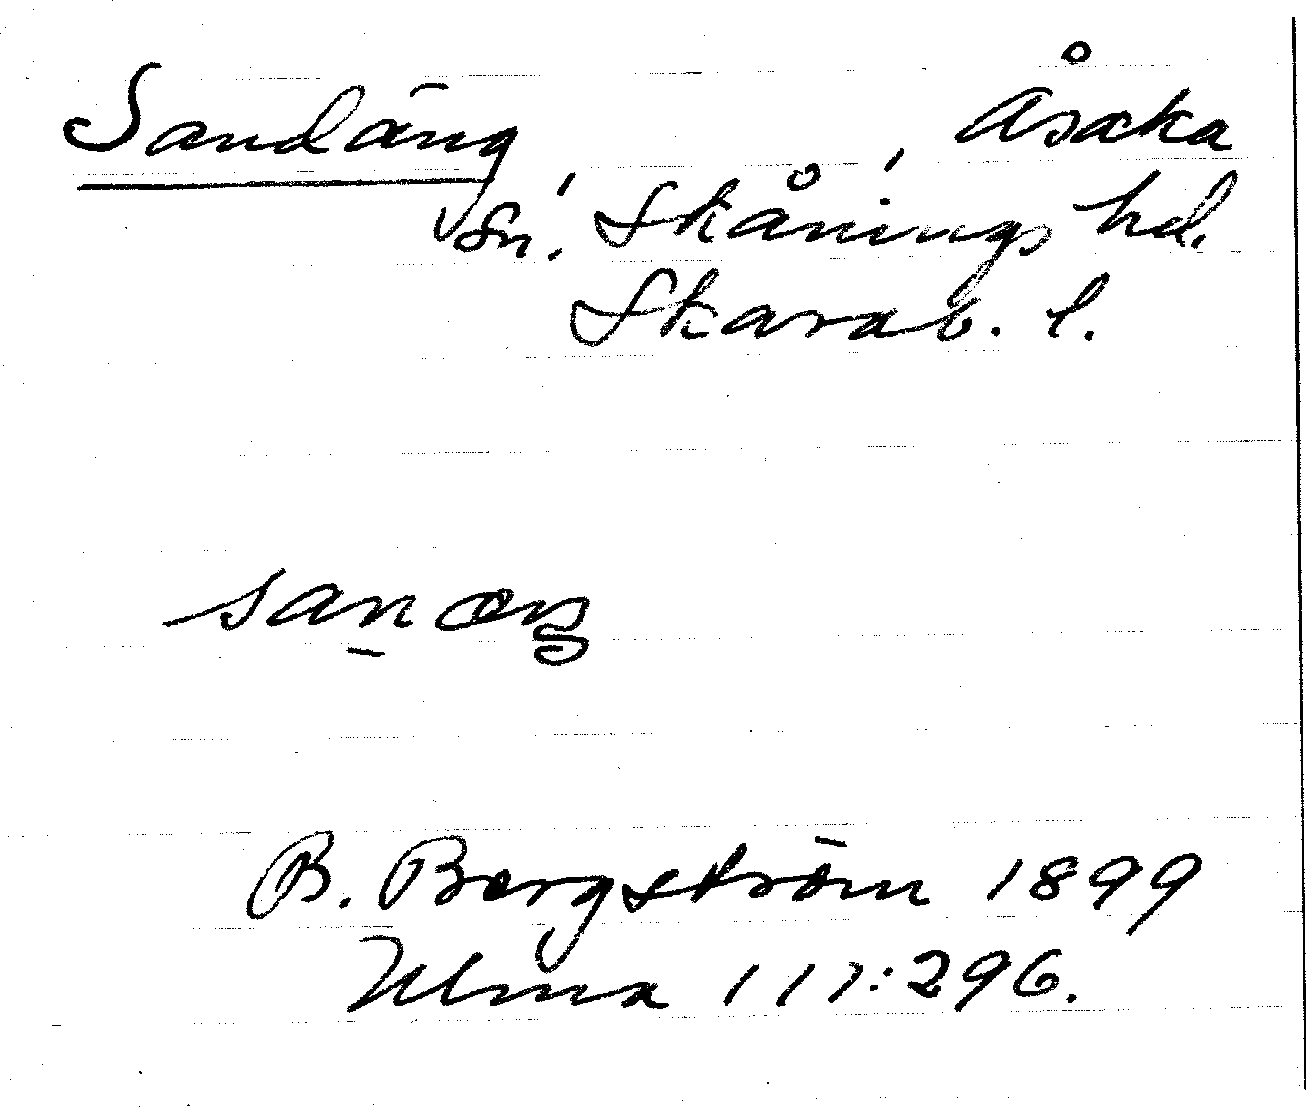 Sandäng, Åsaka
sn, Skånings hd.
Skarab. l.
san æŋ
B. Bergström 1899
Ulma 111:296.